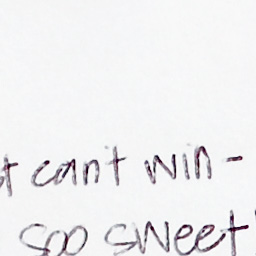 can't win-
soo sweet